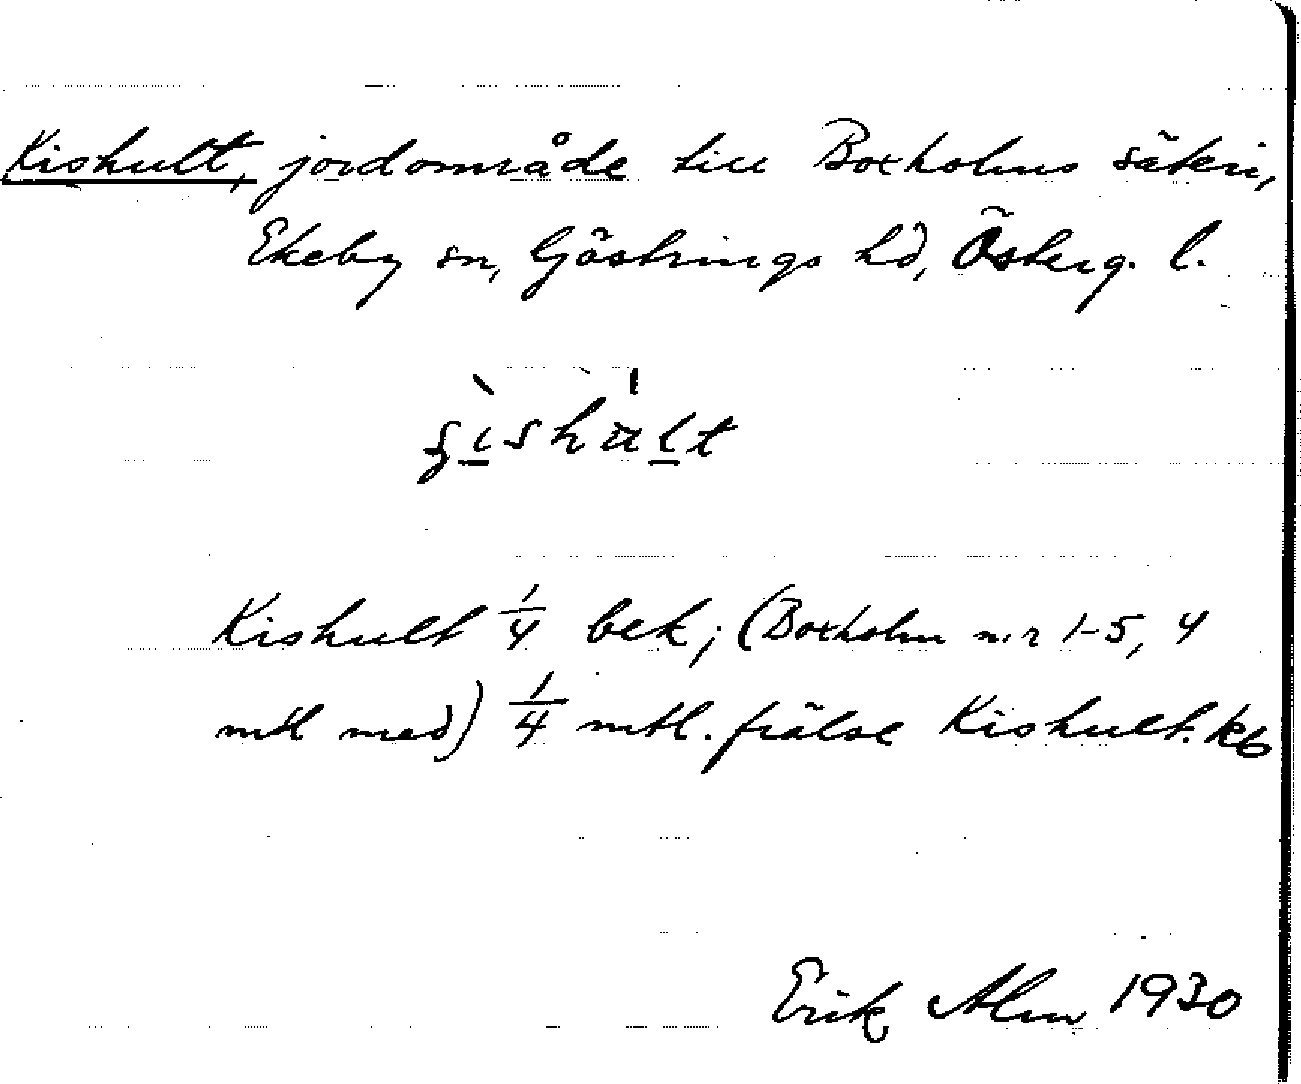 Kishult, jordområde till Boxholms säteri,
Ekeby sn, Göstrings hd, Österg. l.
Kishult 1/4 bek; (Boxholm n:r 1-5, 4
mtl med) 1/4 mtl. frälse Kishult. kb
Erik Alm 1930